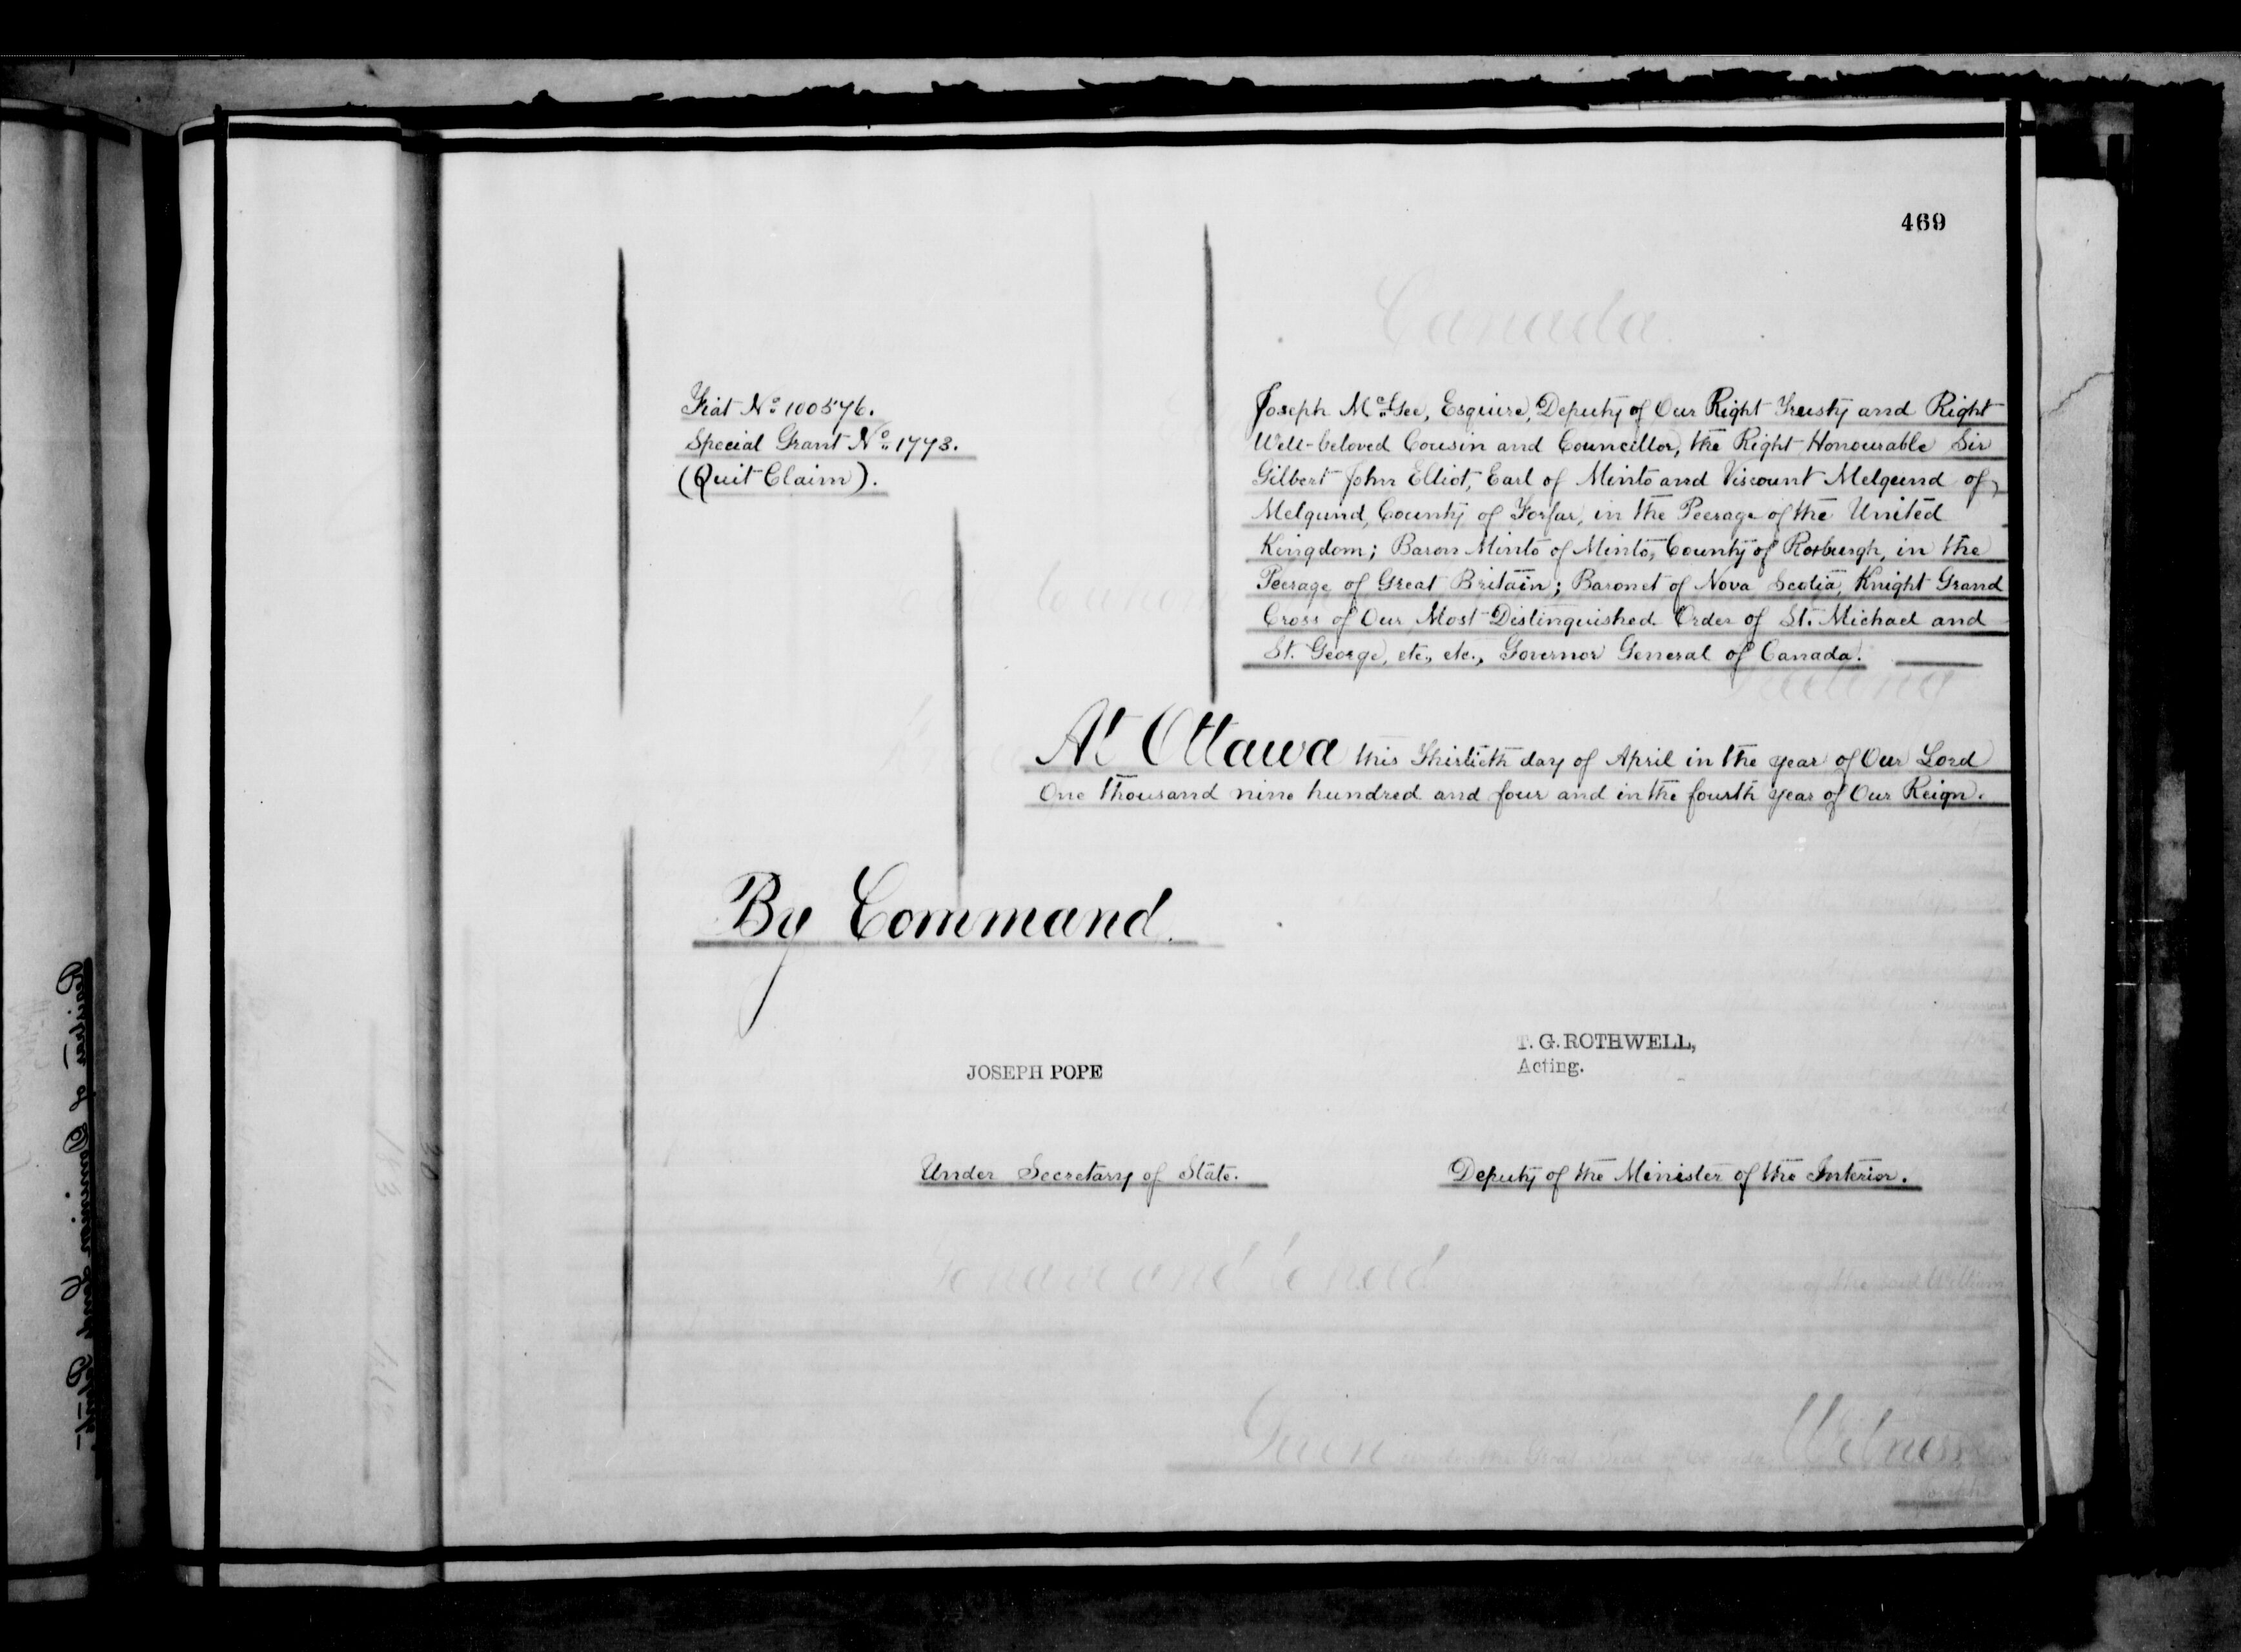 469
Fiat No. 100576.
Special Grant No. 1773.
(Quit Claim).
Joseph McGee, Esquire, Deputy of Our Right Trusty and Right
Well-beloved Cousin and Councillor, the Right Honourable Sir
Gilbert John Elliot, Earl of Minto and Viscount Melgund of
Melgund, County of Forfar, in the Peerage of the United
Kingdom; Baron Minto of Minto, County of Roxburgh, in the
Peerage of Great Britain; Baronet of Nova Scotia, Knight Grand
Cross of Our Most Distinguished Order of St. Michael and
St. George, etc., etc., Governor General of Canada.
At Ottawa this Thirtieth day of April in the year of Our Lord
One thousand nine hundred and four and in the fourth year of Our Reign.
By Command.
T. G. ROTHWELL,
Acting.
JOSEPH POPE
Under Secretary of State.
Deputy of the Minister of the Interior.